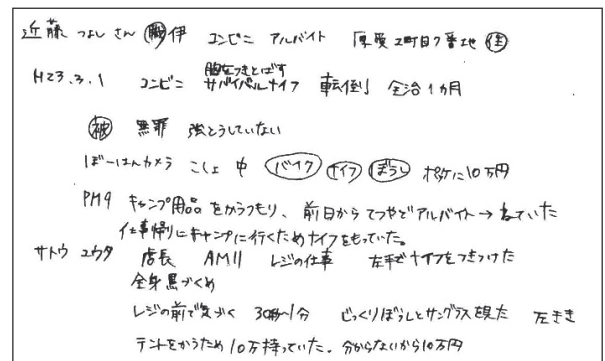 近藤 つよし さん 職 伊 コンビニ アルバイト 厚愛2町目7番地 住
H23.3.1 コンビニ 胸をつきとばす サバイバルナイフ 転倒 全治1ヵ月
被 無罪 強とうしていない
ぼーはんカメラ こしょ中 バイク ナイフ ぼうし ポケに10万円
PM9 キャンプ用品をかうつもり、前日からてつやでアルバイト→ねていた
仕事帰りにキャンプに行くためナイフをもっていた。
サトウ ユウタ 店長 AM11 レジの仕事 左手でナイフをつきつけた
全身黒づくめ
レジの前で気づく 30秒~1分 じっくりぼうしとサングラスを見た 左きき
テントをかうため10万持っていた。分からないから10万円